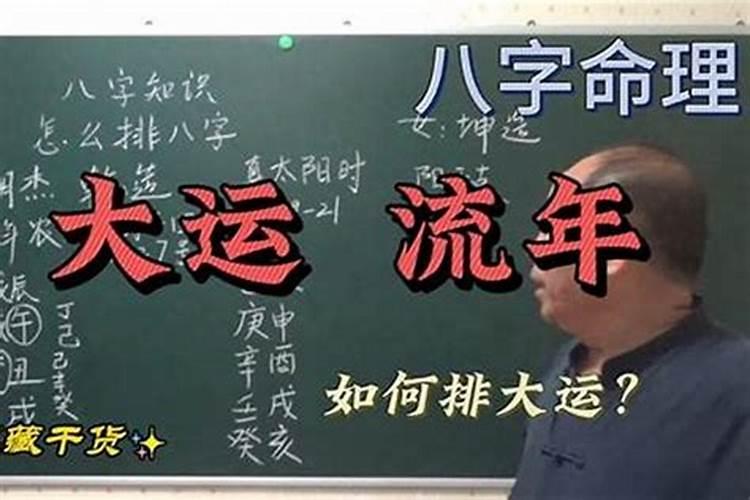 八字命理
八字知识
怎么排八字
女:坤造
杰 乾造
真太阳时
大运 流年
农
辰
午 丁己
丑 己辛癸
戌
庚申
辛酉
壬戌
癸亥
如何排大运?
藏干货